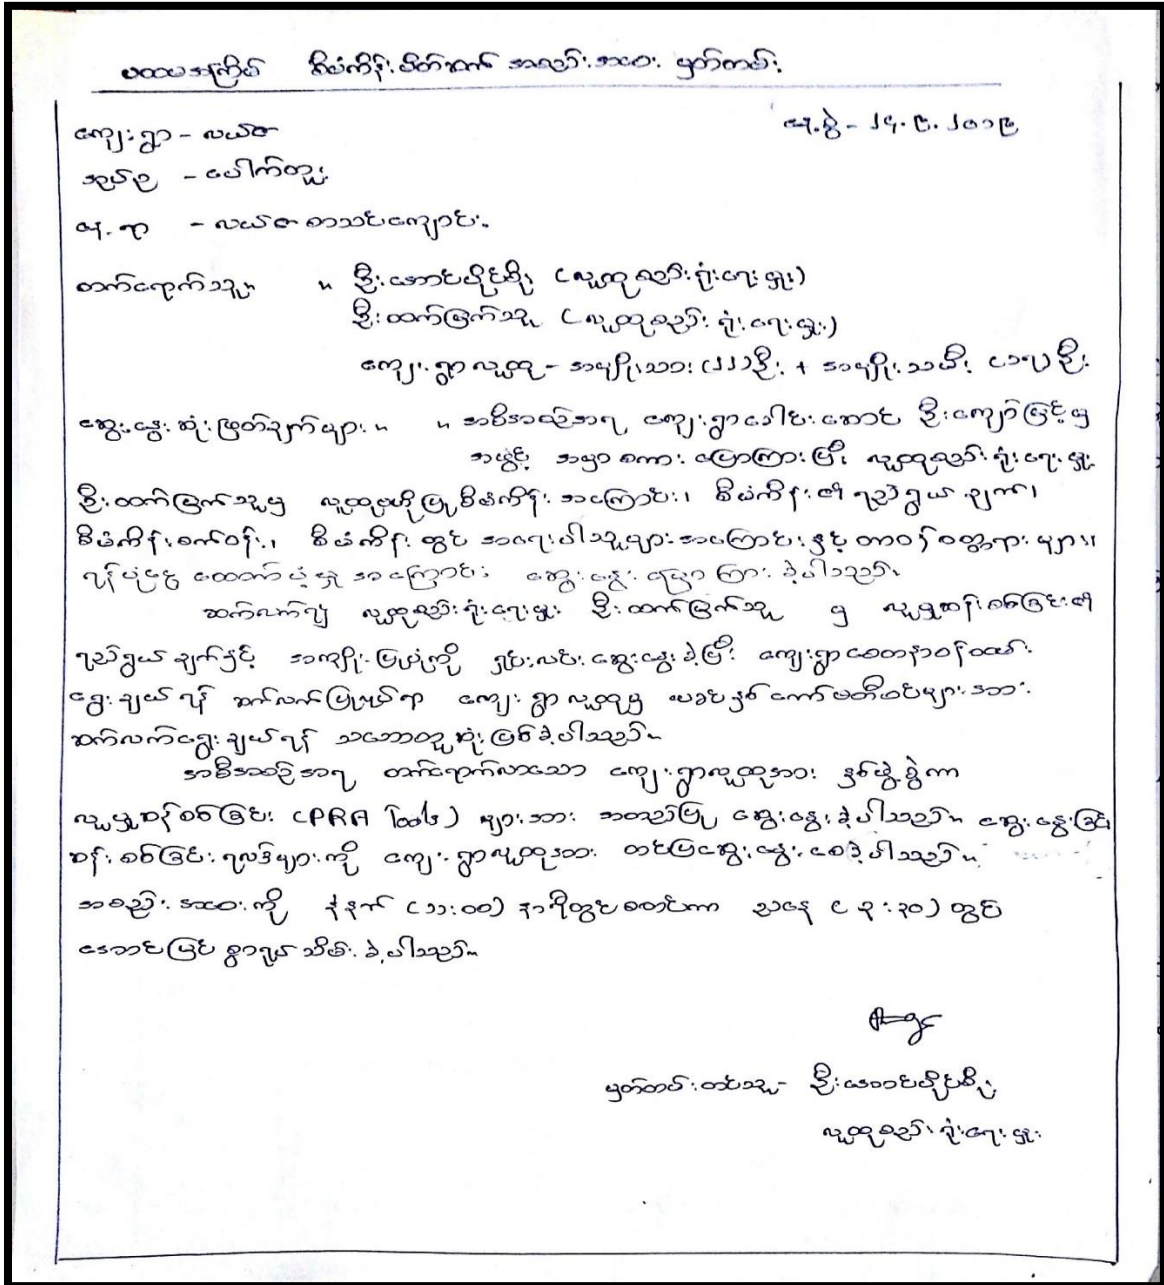 ပထမအကြိမ် စီမံကိန်းမိတ်ဆက် အစည်းအဝေး မှတ်တမ်း
နေ့စွဲ - ၂၄.၉.၂၀၁၉
ကျေးရွာ - လယ်ဇ
အုပ်စု - ပေါက်တူး
နေရာ - လယ်ဇ စာသင်ကျောင်း
တက်ရောက်သူ။ ။ ဦးအောင်မိုင်စိုး (လူထုစည်းရုံးရေးမှူး)
ဦးထက်မြက်သူ (လူထုစည်းရုံးရေးမှူး)
ကျေးရွာလူထု - အမျိုးသား (၂၂)ဦး + အမျိုးသမီး (၁၇)ဦး
ဆွေးနွေးဆုံးဖြတ်ချက်များ။ ။ အစီအစဉ်အရ ကျေးရွာခေါင်းဆောင် ဦးကျော်မြင့်မှ
အဖွင့် အမှာစကား ပြောကြားပြီး လူထုစည်းရုံးရေးမှူး
ဦးထက်မြက်သူမှ လူထုဗဟိုပြုစီမံကိန်း အကြောင်း၊ စီမံကိန်း၏ ရည်ရွယ်ချက်၊
စီမံကိန်းစက်ဝန်း၊ စီမံကိန်းတွင် အရေးပါသူများအကြောင်းနှင့် တာဝန်ဝတ္တရားများ၊
ရန်ပုံငွေ ထောက်ပံ့မှု အကြောင်း ဆွေးနွေး ပြောကြားခဲ့ပါသည်။
ဆက်လက်၍ လူထုစည်းရုံးရေးမှူး ဦးထက်မြက်သူ မှ လူမှုဆန်းစစ်ခြင်း၏
ရည်ရွယ်ချက်နှင့် အကျိုးပြုပုံကို ရှင်းလင်းဆွေးနွေးခဲ့ပြီး ကျေးရွာစေတနာ့ဝန်ထမ်း
ရွေးချယ်ရန် ဆက်လက်ပြုလုပ်ရာ ကျေးရွာလူထုမှ ယခင်နှစ်ကော်မတီဝင်များအား
ဆက်လက်ရွေးချယ်ရန် သဘောတူဆုံးဖြတ်ခဲ့ပါသည်။
အစီအစဉ်အရ တက်ရောက်လာသော ကျေးရွာလူထုအား နှစ်ဖွဲ့ခွဲကာ
လူမှုဆန်းစစ်ခြင်း (PRA Tools) များအား အတည်ပြု ဆွေးနွေးခဲ့ပါသည်။ ဆွေးနွေးခြင်း
ဆန်းစစ်ခြင်းရလဒ်များကို ကျေးရွာလူထုအား တင်ပြဆွေးနွေးစေခဲ့ပါသည်။
အစည်းအဝေးကို နံနက် (၁၁:၀၀) နာရီတွင်စတင်ကာ ညနေ (၃:၃၀) တွင်
အောင်မြင်စွာရုပ်သိမ်းခဲ့ပါသည်။
မှတ်တမ်းတင်သူ - ဦးအောင်မိုင်စိုး
လူထုစည်းရုံးရေးမှူး